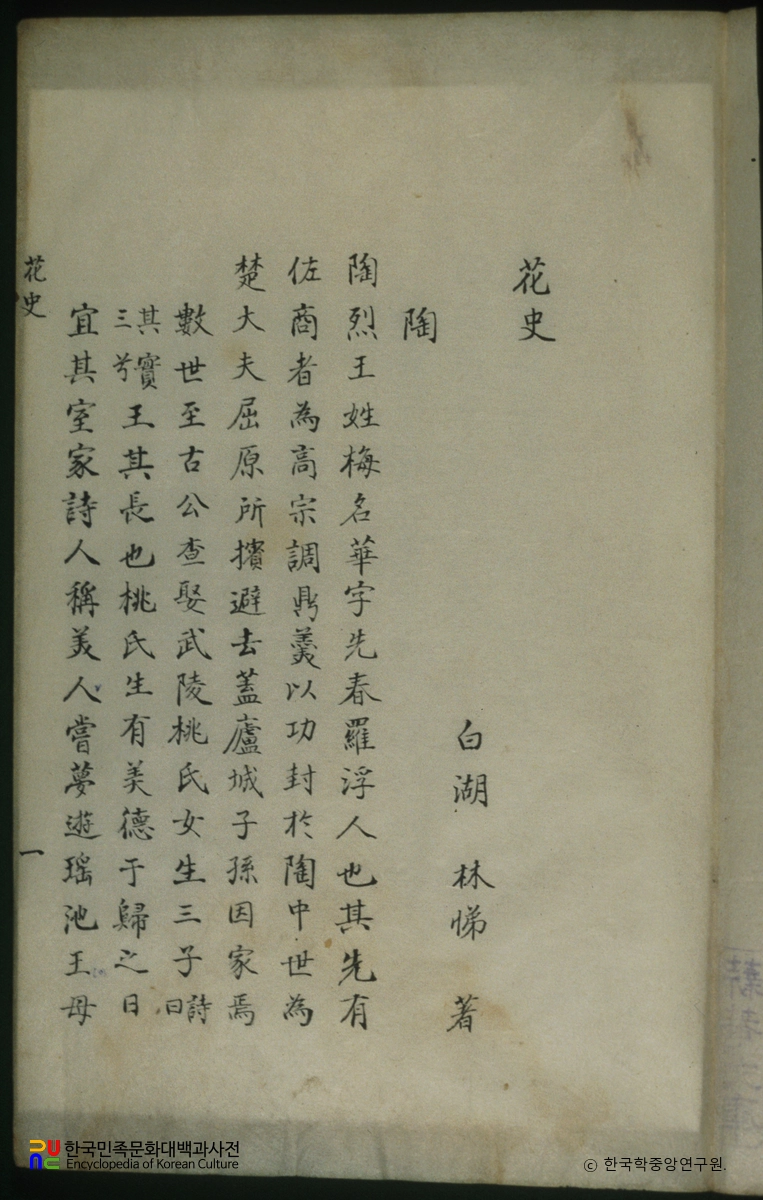 花史
白湖 林悌 著
陶
陶烈王姓梅名華字先春羅浮人也其先有
佐商者為高宗調鼎羹以功封於陶中世為
楚大夫屈原所擯避去蓋廬城子孫因家焉
數世至古公査娶武陵桃氏女生三子詩曰
其實三兮王其長也桃氏生有美德于歸之日
宜其室家詩人稱美人嘗夢遊瑤池王母
花史
一
한국민족문화대백과사전
Encyclopedia of Korean Culture
© 한국학중앙연구원.